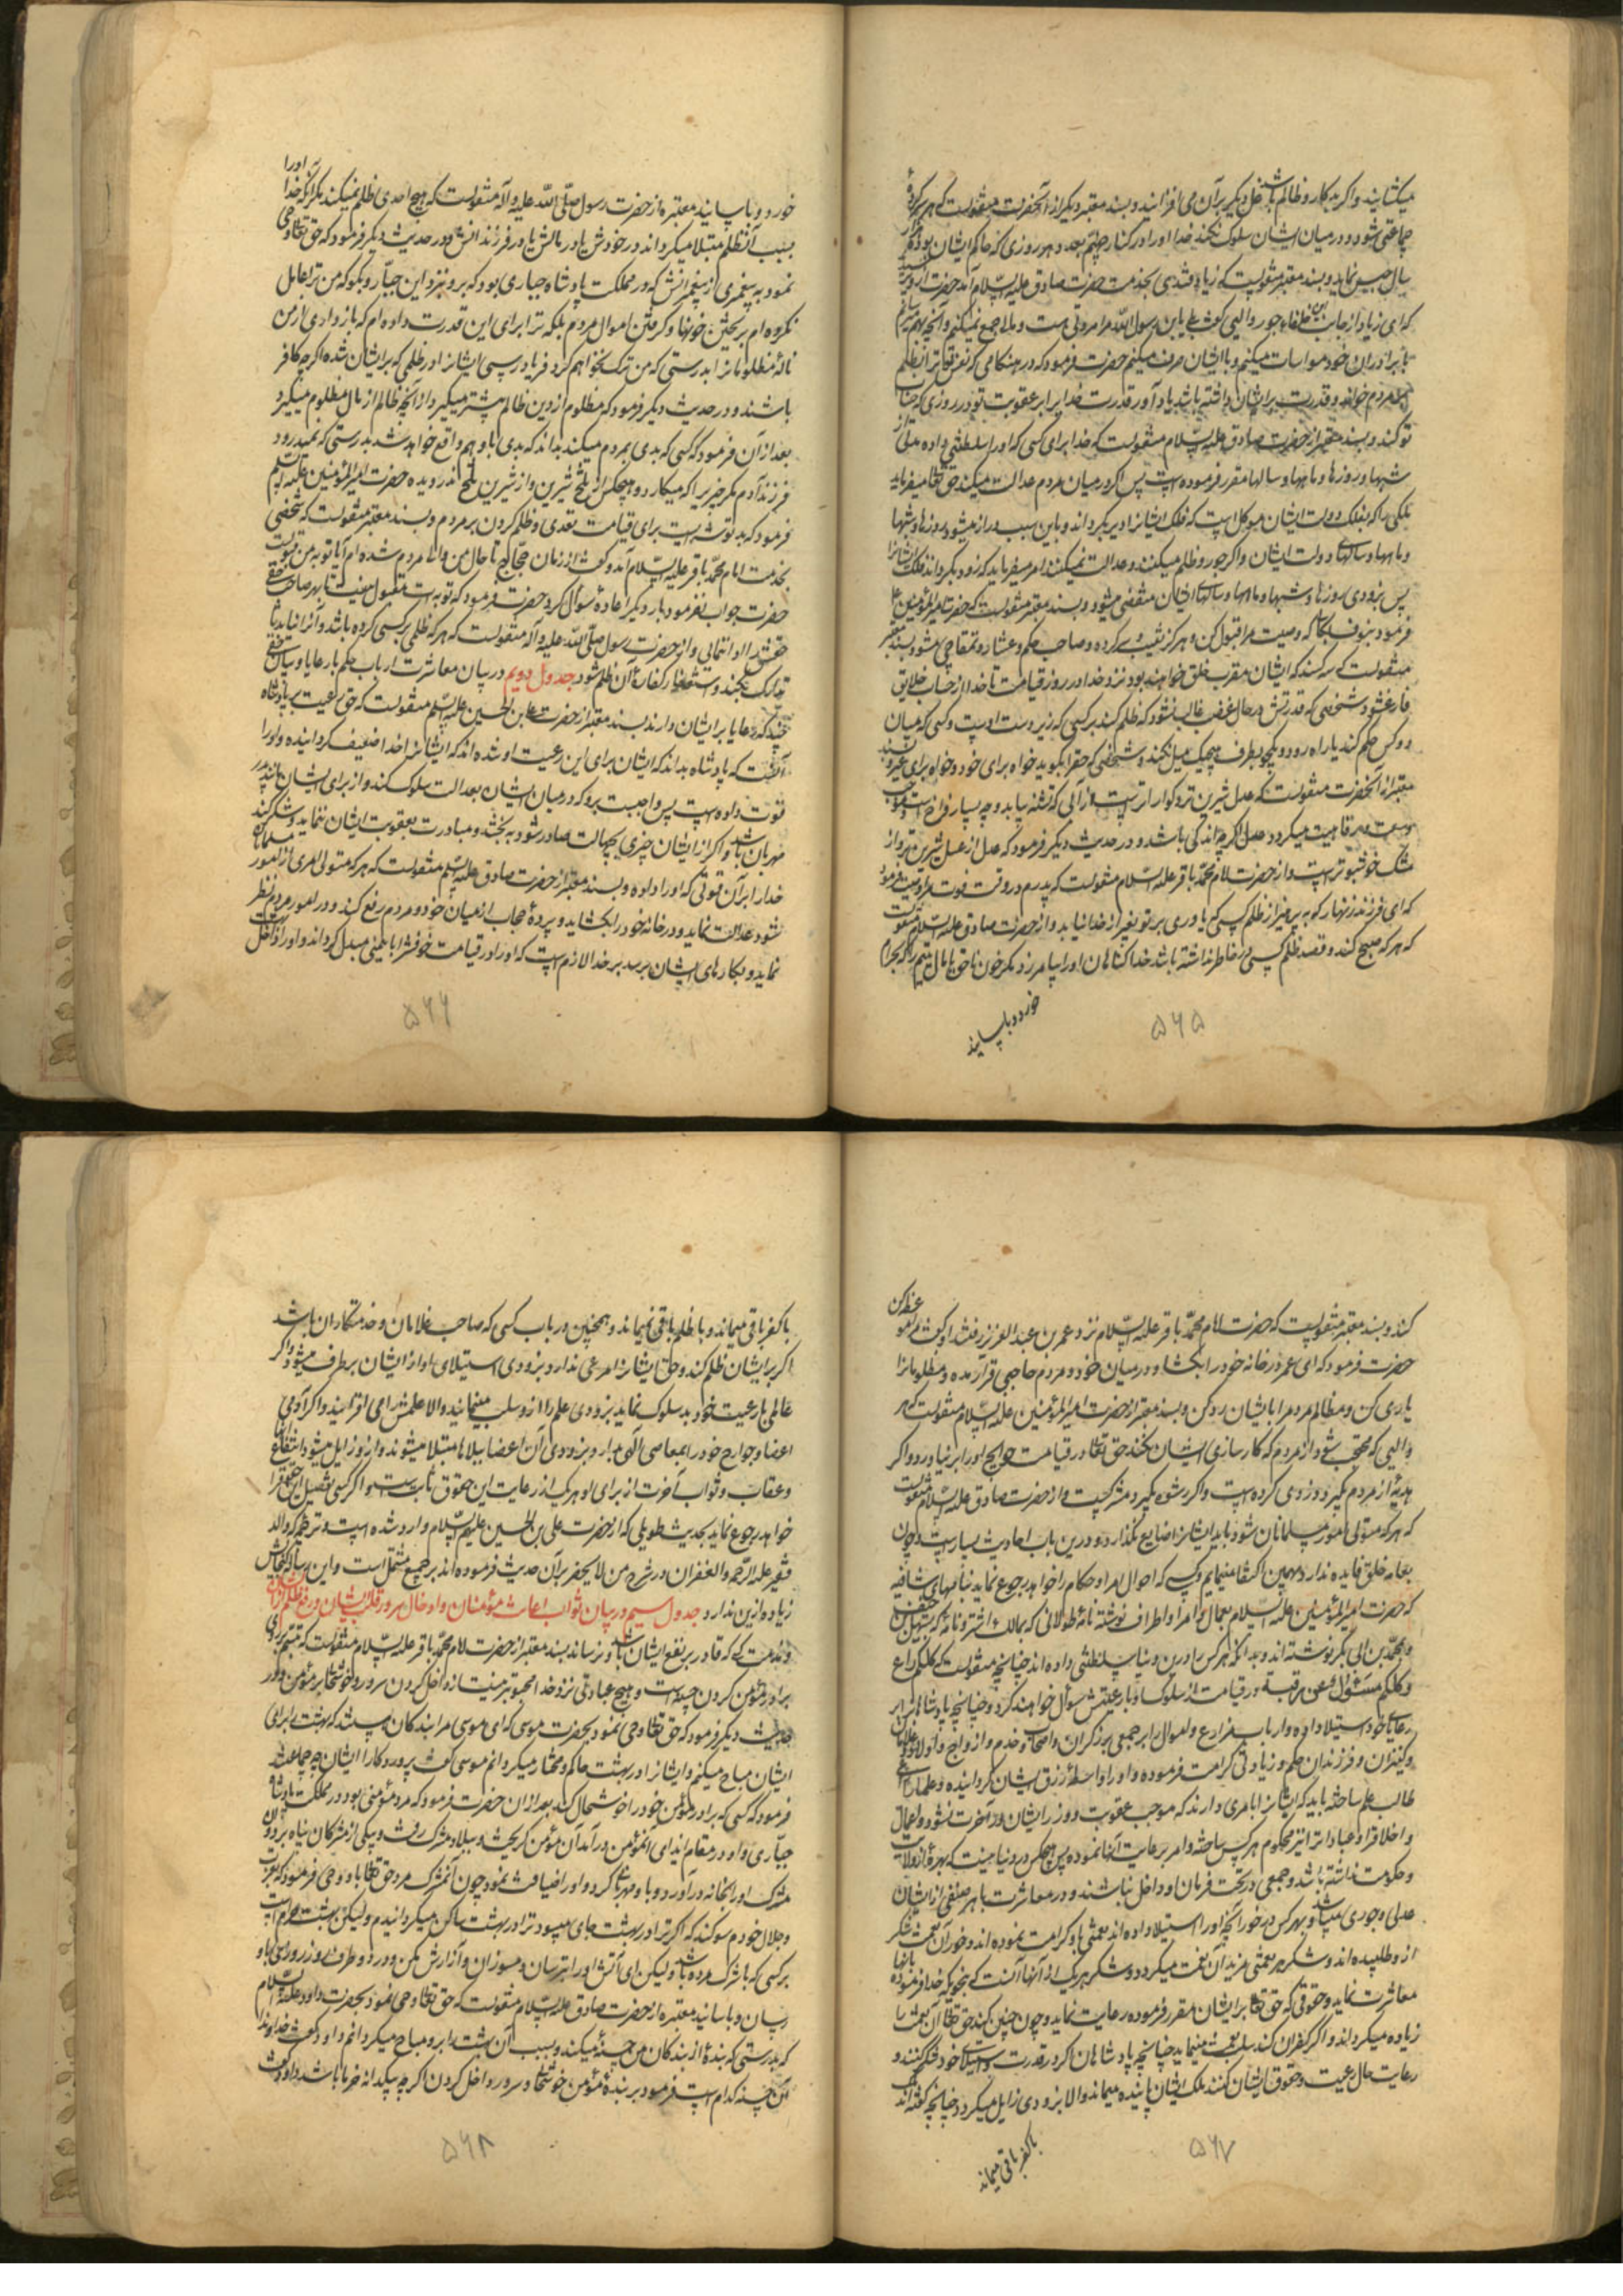 میکشایند و اگر بدکار و ظالم باشد غل دیگر بر آن می افزایند و بسند معتبر دیگر از آنحضرت منقولست که هر سرکردهٔ
جماعتی شود و در میان ایشان سلوک نکند خدا او را در کنار جهنم بعدد هر روزی که حاکم ایشان بوده هزار
سال حبس نماید و بسند معتبر منقولست که زیاد قندی بخدمت حضرت صادق علیه السلام آمد حضرت
که ای زیاد از جانب این خلفاء جور والیی گفت بلی یابن رسول الله مرا مروتی هست و مال جمع نمیکنم و آنچه بهم میرسانم
با برادران خود مواسات میکنم و با ایشان صرف میکنم حضرت فرمود که در هنگامی که نفس تو ترا بظلم
مردم خواند و قدرت بر ایشان داشته باشی بیاد آور قدرت خدا بر عقوبت تو در روزی که حساب
تو کند و بسند معتبر از حضرت صادق علیه السلام منقولست که خدا برای کسی که او را سلطنتی داده مدتی از
شبها و روزها و ماهها و سالها مقرر فرموده است پس اگر در میان مردم عدالت میکند حق تعالی میفرماید
ملکی را که بفلک دولت ایشان موکل است که فلک ایشانرا دیر بگرداند و باین سبب دراز میشود روزها و شبها
و ماهها و سالهای دولت ایشان و اگر جور و ظلم میکنند و عدالت نمیکنند امر میفرماید که زود بگرداند فلک ایشانرا
پس بزودی روزها و شبها و ماهها و سالهای ایشان منقضی میشود و بسند معتبر منقولست که حضرت امیرالمؤمنین علیه
فرمود بنوف بکالی که وصیت مرا قبول کن و هرگز نقیب و سرکرده و صاحب حکم و عشار و تمقاچی مشو و بسند معتبر
منقولست که سه کسند که ایشان مقرب خلق خواهند بود نزد خدا در روز قیامت تا خدا از حساب خلایق
فارغ شود شخصی که قدرتش در حال غضب غالب نشود که ظلم کند بر کسی که زیر دست اوست و کسی که میان
دو کس حکم کند یا راه رود و یکجو بطرف هیچیک میل نکند و شخصی که حق را بگوید خواه برای خود و خواه برای غیر و بسند
معتبر از آنحضرت منقولست که عدل شیرین تر و گواراتر است از آبی که تشنه بیابد و چه بسیار فراخ است و موجب
وسعت و رفاهیت میگردد عدل اگر چه اندکی باشد و در حدیث دیگر فرمود که عدل از عسل شیرین تر و از
مشک خوشبوتر است و از حضرت امام محمد باقر علیه السلام منقولست که پدرم در وقت فوت مرا وصیت فرمود
که ای فرزند زنهار که بپرهیز از ظلم کسی که یاوری بر تو بغیر از خدا نیابد و از حضرت صادق علیه السلام منقولست
که هر که صبح کند و قصد ظلم کسی در خاطر نداشته باشد خدا گناهان او را بیامرزد مگر خون ناحق یا مال یتیم را که بحرام
خورد و باسانید
۵۶۵
خورد و باسانید معتبره از حضرت رسول صلی الله علیه و آله منقولست که هیچ احدی ظلم نمیکند مگر آنکه خدا او را
بسبب آنظلم مبتلا میگرداند در خودش یا در مالش یا در فرزندانش و در حدیث دیگر فرمود که حق تعالی وحی
نمود به پیغمبری از پیغمبرانش که در مملکت پادشاه جباری بود که برو نزد این جبار و بگو که من ترا عامل
نکرده ام بر ریختن خونها و گرفتن اموال مردم بلکه ترا برای این قدرت داده ام که بازداری از من
نالهٔ مظلومانرا بدرستی که من ترک نخواهم کرد فریادرسی ایشانرا در ظلمی که بر ایشان شده اگر چه کافر
باشند و در حدیث دیگر فرمود که مظلوم از دین ظالم بیشتر میگیرد از آنچه ظالم از مال مظلوم میگیرد
بعد از آن فرمود که کسی که بدی بمردم میکند بداند که بدی باو هم واقع خواهد شد بدرستی که نمیدرود
فرزند آدم مگر چیزیرا که میکارد و هیچکس از تلخ شیرین و از شیرین تلخ ندرویده حضرت امیرالمؤمنین علیه السلام
فرمود که بد توشه ایست برای قیامت تعدی و ظلم کردن بر مردم و بسند معتبر منقولست که شخصی
بخدمت امام محمد باقر علیه السلام آمد و گفت از زمان حجاج تا حال من والی مردم شده ام آیا توبه من قبولست
حضرت جواب نفرمود بار دیگر اعادهٔ سؤال کرد حضرت فرمود که توبه ات مقبول نیست تا بهر صاحب حقی
حقش را ادا نمائی و از حضرت رسول صلی الله علیه و آله منقولست که هر که ظلمی بر کسی کرده باشد و آنرا نیابد تا
تدارک بکند استغفار کند که کفارهٔ آن ظلم شود جدول دویم در بیان معاشرت ارباب حکم با رعایا و بیان حقی
چند که رعایا بر ایشان دارند بسند معتبر از حضرت علی بن الحسین علیه السلام منقولست که حق رعیت بر پادشاه
آنست که پادشاه بداند که ایشان برای این رعیت او شده اند که ایشانرا خدا ضعیف گردانیده و او را
قوت داده است پس واجبست برو که در میان ایشان بعدالت سلوک کند و از برای ایشان مانند پدر
مهربان باشد و اگر از ایشان چیزی بجهالت صادر شود ببخشد و مبادرت بعقوبت ایشان ننماید و شکر کند
خدا را بر آن قوتی که او را داده و بسند معتبر از حضرت صادق علیه السلام منقولست که هر که متولی امری از امور مسلمانان
شود و عدالت نماید و در خانهٔ خود را بگشاید و پردهٔ حجاب از میان خود و مردم رفع کند و در امور مردم نظر
نماید و بکارهای ایشان برسد بر خدا لازم است که او را در قیامت خوفش را بایمنی مبدل گرداند و او را داخل
۵۶۶
کند و بسند معتبر منقولست که حضرت امام محمد باقر علیه السلام نزد عمر بن عبدالعزیز رفتند او گفت مرا موعظه کن
حضرت فرمود که ای عمر در خانه خود را بگشا و در میان خود و مردم حاجبی قرار مده و مظلومانرا
یاری کن و مظالم مردم را بایشان رد کن و بسند معتبر از حضرت امیرالمؤمنین علیه السلام منقولست که هر
والیی که محتجب شود از مردم که کارسازی ایشان نکند حق تعالی در قیامت حوایج او را بر نیاورد و اگر
هدیه از مردم بگیرد دزدی کرده است و اگر رشوه بگیرد مشرکست و از حضرت صادق علیه السلام منقولست
که هر که متولی امور مسلمانان شود باید ایشانرا ضایع نگذارد و درین باب احادیث بسیار است و چون
بعامه خلق فایده ندارد بهمین اکتفا مینمایم و کسی که احوال امرا و حکام را خواهد رجوع نماید بنامهای شافیه
که حضرت امیرالمؤمنین علیه السلام بعمال و امرا و اطراف نوشته نامهٔ طولانی که بمالک اشتر و نامه که بسهل بن حنیف
و محمد بن ابی بکر نوشته اند و بدانکه هر کس را درین دنیا سلطنتی داده اند چنانچه منقولست که کلکم راع
و کلکم مسئول عن رعیته و در قیامت از سلوک او با رعیتش سؤال خواهند کرد و چنانچه پادشاهانرا بر
رعایای خود استیلا داده و ارباب مزارع و اموال را بر جمعی برزگران و اصحاب خدم و ازواج و اولاد را بر غلامان
و کنیزان و فرزندان حکم و زیادتی کرامت فرموده و او را واسطهٔ رزق ایشان گردانیده و علما را راعی
طالب علم ساخته باید که ایشانرا بامری دارند که موجب عقوبت و وزر ایشان در آخرت نشود و اعمال
و اخلاق او عبادات را نیز محکوم هر کس ساخته و امر برعایت آنها نموده پس هیچکس در دنیا نیست که بهرهٔ از ولایت
و حکومت نداشته باشد و جمعی در تحت فرمان او داخل نباشند و در معاشرت با هر صنفی از ایشان
عدلی و جوری میباشد و بهر کس در خور آنچه او را استیلا داده اند نعمتی باو کرامت نموده اند و در خور آن نعمت شکر
ازو طلبیده اند و شکر هر نعمتی مزید آن نعمت میگردد و شکر هر یک از آنها آنست که بنحویکه خدا فرموده با آنها
معاشرت نماید و حقوقی که حق تعالی بر ایشان مقرر فرموده رعایت نماید و چون چنین کند حق تعالی آن نعمت را
زیاده میگرداند و اگر کفران کند سلب نعمت مینماید چنانچه پادشاهان اگر در قدرت و استیلاء خود شکر کنند و
رعایت حال رعیت و حقوق ایشان کنند ملک ایشان پاینده میماند و الا بزودی زایل میگردد چنانچه گفته اند
با کفر باقی میماند
۵۶۷
با کفر باقی میماند و با ظلم باقی نمیماند و همچنین در باب کسی که صاحب غلامان و خدمتکاران باشد
اگر بر ایشان ظلم کند و حق ایشانرا مرعی ندارد بزودی استیلای او از ایشان برطرف میشود و اگر
عالمی با رعیت خود بد سلوک نماید بزودی علم را ازو سلب مینمایند و الا علمش را می افزایند و اگر آدمی
اعضا و جوارح خود را بمعاصی الهی بدارد بزودی آن اعضا ببلاها مبتلا میشوند و ازو زایل میشود انتفاع
و عقاب و ثواب آخرت از برای او هر یک از رعایت این حقوق ثابتست و اگر کسی تفصیل این حقوق را
خواهد رجوع نماید بحدیث طویلی که از حضرت علی بن الحسین علیهم السلام وارد شده است و ترجمه که والد
فقیر علیه الرحمه و الغفران در شرح من لا یحضر بر آن حدیث فرموده اند بر جمیع مشتمل است و این رساله گنجایش
زیاده ازین ندارد جدول سیم در بیان ثواب اعانت مؤمنان و ادخال سرور در قلب ایشان و رفع ظلم از ایشان
و مذمت کسی که قادر بر نفع ایشان باشد و نرساند بسند معتبر از حضرت امام محمد باقر علیه السلام منقولست که تبسم بر روی
برادر مؤمن کردن حسنه است و هیچ عبادتی نزد خدا محبوبتر نیست از داخل کردن سرور و خوشحالی بر مؤمن و در
حدیث دیگر فرمود که حق تعالی وحی نمود بحضرت موسی که ای موسی مرا بندگان هستند که بهشت را برای
ایشان مباح میکنم و ایشانرا در بهشت حاکم و مختار میگردانم موسی گفت پروردگارا ایشان چه جماعتند
فرمود که کسی که برادر مؤمن خود را خوشحال کند بعد از آن حضرت فرمود که مرد مؤمنی بود در مملکت پادشاه
جباری و او در مقام ایذای آنمؤمن در آمد آن مؤمن گریخت و ببلاد مشرک رفت و بیکی از مشرکان پناه برد و آن
مشرک او را بخانه در آورد و باو مهربانی کرد و او را ضیافت نمود چون آنمشرک مرد حق تعالی باو وحی فرمود که بعزت
و جلال خودم سوگند که اگر ترا در بهشت جای میبود ترا در بهشت ساکن میگردانیدم ولیکن بهشت حرام است
بر کسی که با شرک مرده باشد ولیکن ای آتش او را بترسان و مسوزان و آزارش مکن و در دو طرف روز روزی باو
رسان و باسانید معتبره از حضرت صادق علیه السلام منقولست که حق تعالی وحی نمود بحضرت داود علیه السلام
که بدرستی که بندهٔ از بندگان من حسنه میکند و بسبب آن بهشت را برو مباح میگردانم داود گفت خداوندا
آن حسنه کدام است فرمود بر بندهٔ مؤمن خوشحالی و سرور داخل کردن اگر چه بیکدانه خرما باشد داود گفت
۵۶۸